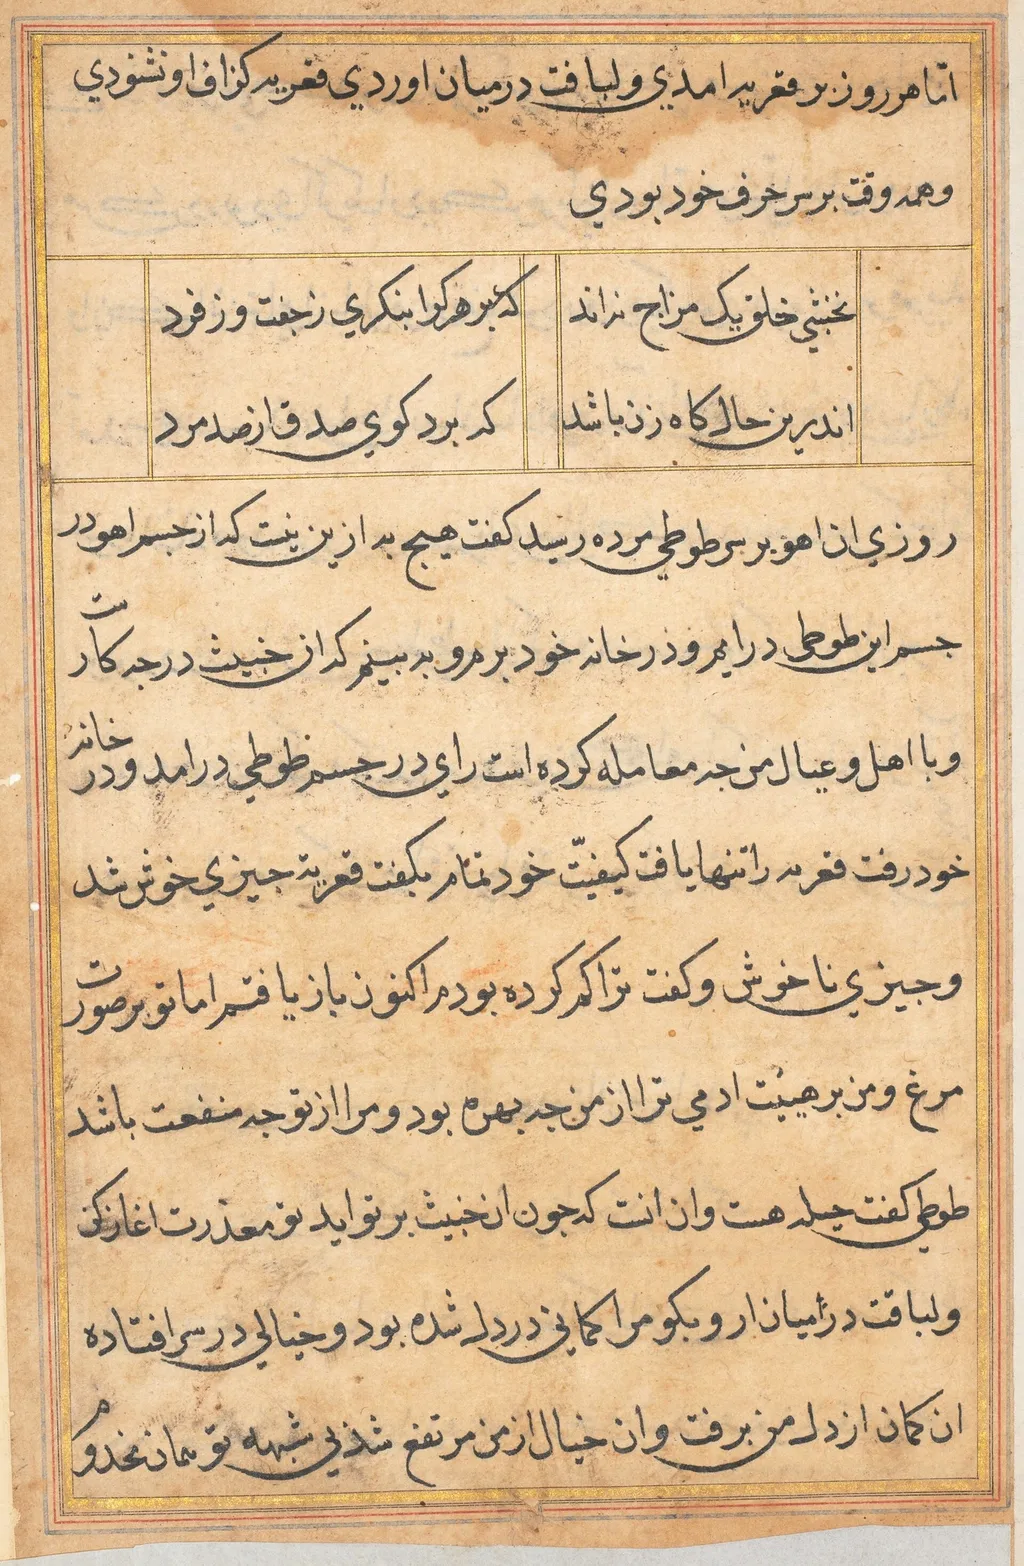 اما هر روز بر قعریه امدي و لباقت در میان اوردي قعریه کزاف او نشنودي
و همه وقت بر سر حرف خود بودي
نخشبي خلق یک مزاج نه‌اند
که بر هر کرا بنکري ز جفت و ز فرد
اندرین حال کاه زن باشد
که برد کوي صدق از صد مرد
روزي ان اهو بر سر طوطي مرده رسید کفت هیچ به ازین نیست که از جسم اهو در
جسم این طوطي درایم و در خانه خود بروم و به بینم که ان خبیث در چه کارست
و با اهل و عیال من چه معامله کرده است راي در جسم طوطي درامد و در خانه
خود رفت قعریه را تنها یافت کیفیّت خود تمام بکفت قعریه چیزي خوش شد
و چیزي ناخوش و کفت ترا کم کرده بودم اکنون باز یافتم اما تو بر صورت
مرغ و من بر هیئت ادمي ترا از من چه بهره بود و مرا از تو چه منفعت باشد
طوطي کفت حیله هست و ان انست که چون ان خبیث بر تو اید تو معذرت اغاز کن
و لباقت در میان ار و بکو مرا کماني در دل شده بود و خیالي در سر افتاده
ان کمان از دل من برفت و ان خیال از من مرتفع شد بي شبهه تو همان مخدوم